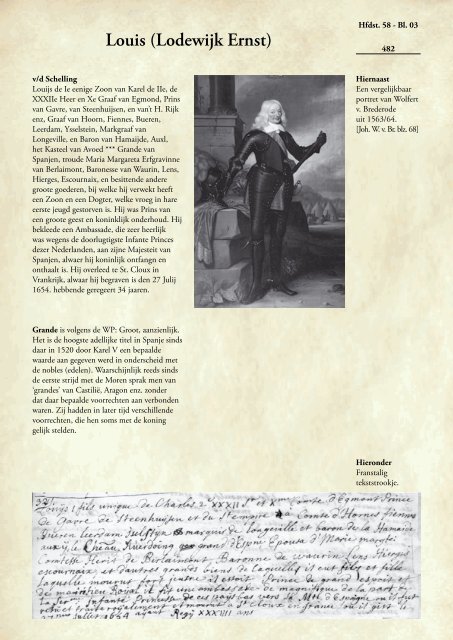 Hfdst. 58 - Bl. 03
Louis (Lodewijk Ernst)
482
v/d Schelling
Louijs de Ie eenige Zoon van Karel de IIe, de
XXXIIe Heer en Xe Graaf van Egmond, Prins
van Gavre, van Steenhuijsen, en van't H. Rijk
enz, Graaf van Hoorn, Fiennes, Bueren,
Leerdam, Ysselstein, Markgraaf van
Longeville, en Baron van Hamaijde, Auxl,
het Kasteel van Avoed *** Grande van
Spanjen, troude Maria Margareta Erfgravinne
van Berlaimont, Baronesse van Waurin, Lens,
Hierges, Escournaix, en besittende andere
groote goederen, bij welke hij verwekt heeft
een Zoon en een Dogter, welke vroeg in hare
eerste jeugd gestorven is. Hij was Prins van
een groote geest en koninklijk onderhoud. Hij
bekleede een Ambassade, die zeer heerlijk
was wegens de doorlugtigste Infante Princes
dezer Nederlanden, aan zijne Majesteit van
Spanjen, alwaer hij koninklijk ontfangn en
onthaalt is. Hij overleed te St. Cloux in
Vrankrijk, alwaar hij begraven is den 27 Julij
1654. hebbende geregeert 34 jaaren.
Hiernaast
Een vergelijkbaar
portret van Wolfert
v. Brederode
uit 1563/64.
[Joh. W. v. Br. blz. 68]
Grande is volgens de WP: Groot, aanzienlijk.
Het is de hoogste adellijke titel in Spanje sinds
daar in 1520 door Karel V een bepaalde
waarde aan gegeven werd in onderscheid met
de nobles (edelen). Waarschijnlijk reeds sinds
de eerste strijd met de Moren sprak men van
'grandes' van Castilië, Aragon enz. zonder
dat daar bepaalde voorrechten aan verbonden
waren. Zij hadden in later tijd verschillende
voorrechten, die hen soms met de koning
gelijk stelden.
Hieronder
Franstalig
tekststrookje.
Louijs 1 fils unique de Charles 2 XXXII Sr et Xme Comte d'Egmont Prince
de Gavre de Steenhuijsen et du St empire Comte d'Hornes fiennes
Bueren leerdam Iselstyn marquis de longeville et baron de la Hamaide
Chau grand d'Espn Epousa d'Marie
Comtesse Herit de Berlaimont, Baronne de waurin Lens Hierges
escournaix et d'autres grands biens de laquelle il eut fils et fille
laquelle mourut fort jeusne il estoit Prince de grand esprit et
Royal il fit une ambassade magnifique de la part
Infante Princesse de ces pays bas vers sa Mté d'Espagne ou il fust
et traité royalement et mourut a St Cloux en france ou il gist le
27 Juillet ayant Regij XXXIIII ans